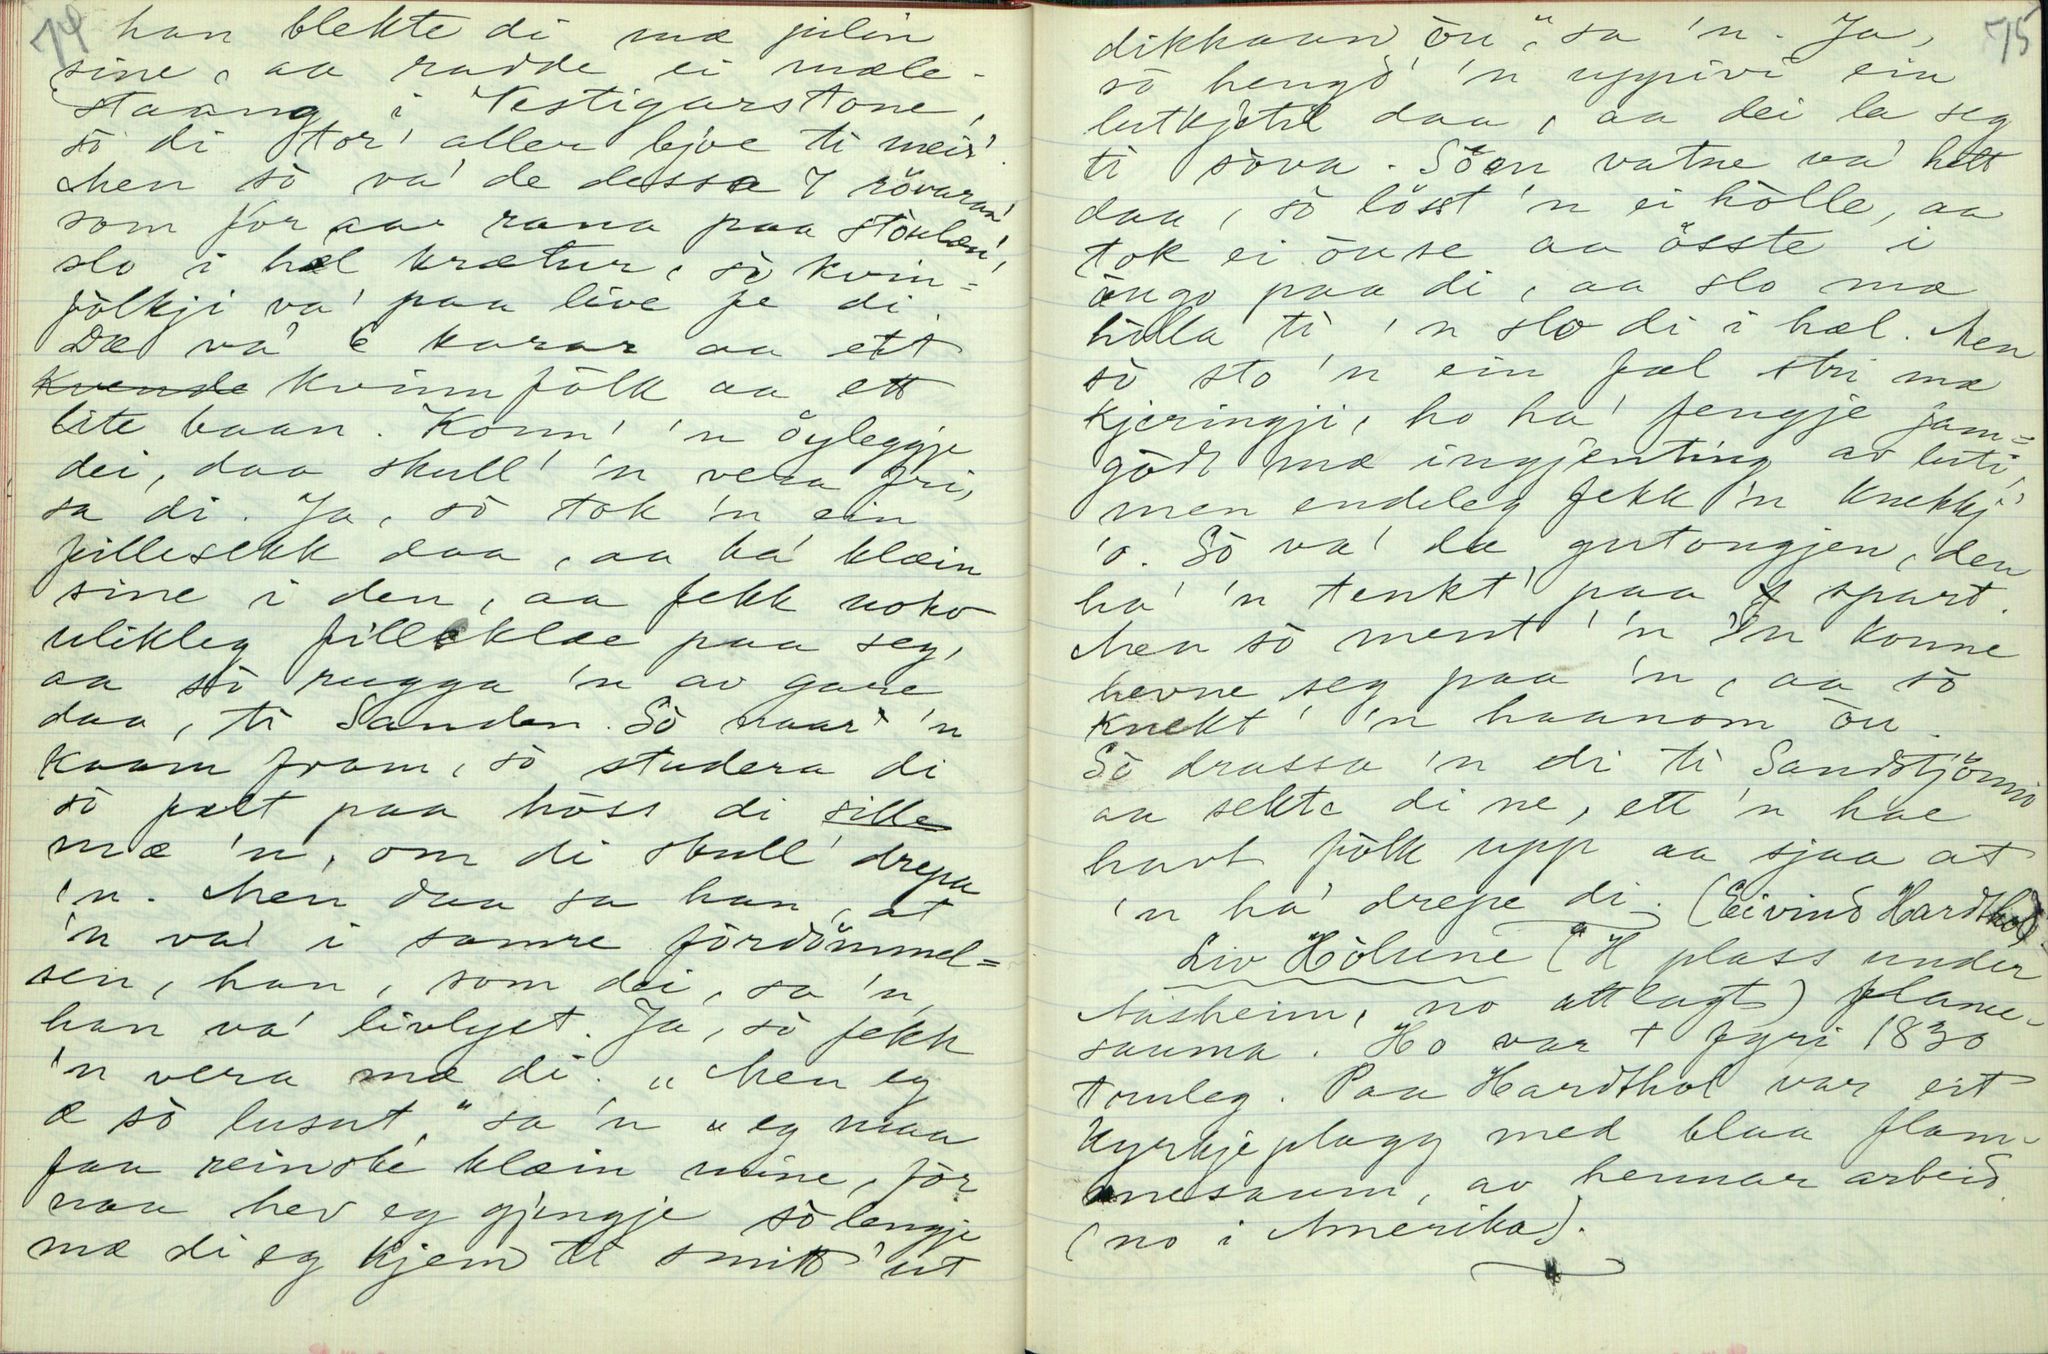 74
han blekte di mæ pilin
sine, aa radde ei mæle-
staang i Vestigarstone,
sò di tor' aller bjòe ti meir'.
Men sò va' de dessa 7 rövaran'
som for aa rana paa stòulan',
slo i hæl krætur, sò kvin=
fòlkji va' paa live fe di.
Dæ va' 6 karar aa ett
kvende kvinnfòlk aa ett
lite baan. Konn' 'n öyleggje
dei, daa skull' 'n vera fri,
sa di. Ja, sò tok 'n ein
fillesekk daa, aa ha' klæin
sine i den, aa fekk noko
ulikleg filleklæe paa seg,
aa sò rugga 'n av gare
daa, ti Sanden. Sò naar 'n
kaam fram, sò studera di
sò fælt paa hòss di sille
mæ 'n, om di skull' drepa
'n. Men daa sa han, at
'n va' i samre fòrdömmel=
sen, han, som dei, sa 'n,
han va' livlyst. Ja, sò fekk
'n vera mæ di. „Men eg
æ sò lusut," sa 'n „eg maa
faa reinske klæin mine, fòr
naa hev eg gjengje sò lengje
mæ di eg kjem te smitt' ut
75
dikkaan òu," sa 'n. Ja,
sò hengd' 'n uppivi ein
lutkjetil daa, aa dei la seg
ti sòva. Sòen vatne va' hett
daa, sò lösst 'n ei hòlle, aa
tok ei òuse aa össte i
òugo paa di, aa slo mæ
hòlla ti 'n slo di i hæl. Men
sò sto 'n ein fæl stri mæ
kjeringji, ho ha' fengje jam=
gòdt mæ ingjenting av luti,
men endeleg fekk 'n knekkj'
'o. Sò va' dæ gutongjen, den
ha' 'n tenkt' paa spart.
Men sò ment' 'n 'n konne
hevne seg paa 'n, aa sò
knekt' 'n haanom òu.
Sò drassa 'n di ti Sandstjönnio
aa sekte di ne, ett 'n hae
havt fòlk upp aa sjaa at
'n ha' drepe di. (Eivind Hardthol)
Liv Hòlune (H plass under
Aasheim, no attlagt) flame-
sauma. Ho var † fyri 1830
truleg. Paa Hardthol var eit
kyrkjeplagg med blaa flam-
mesaum, av hennar arbeid.
(no i Amerika).